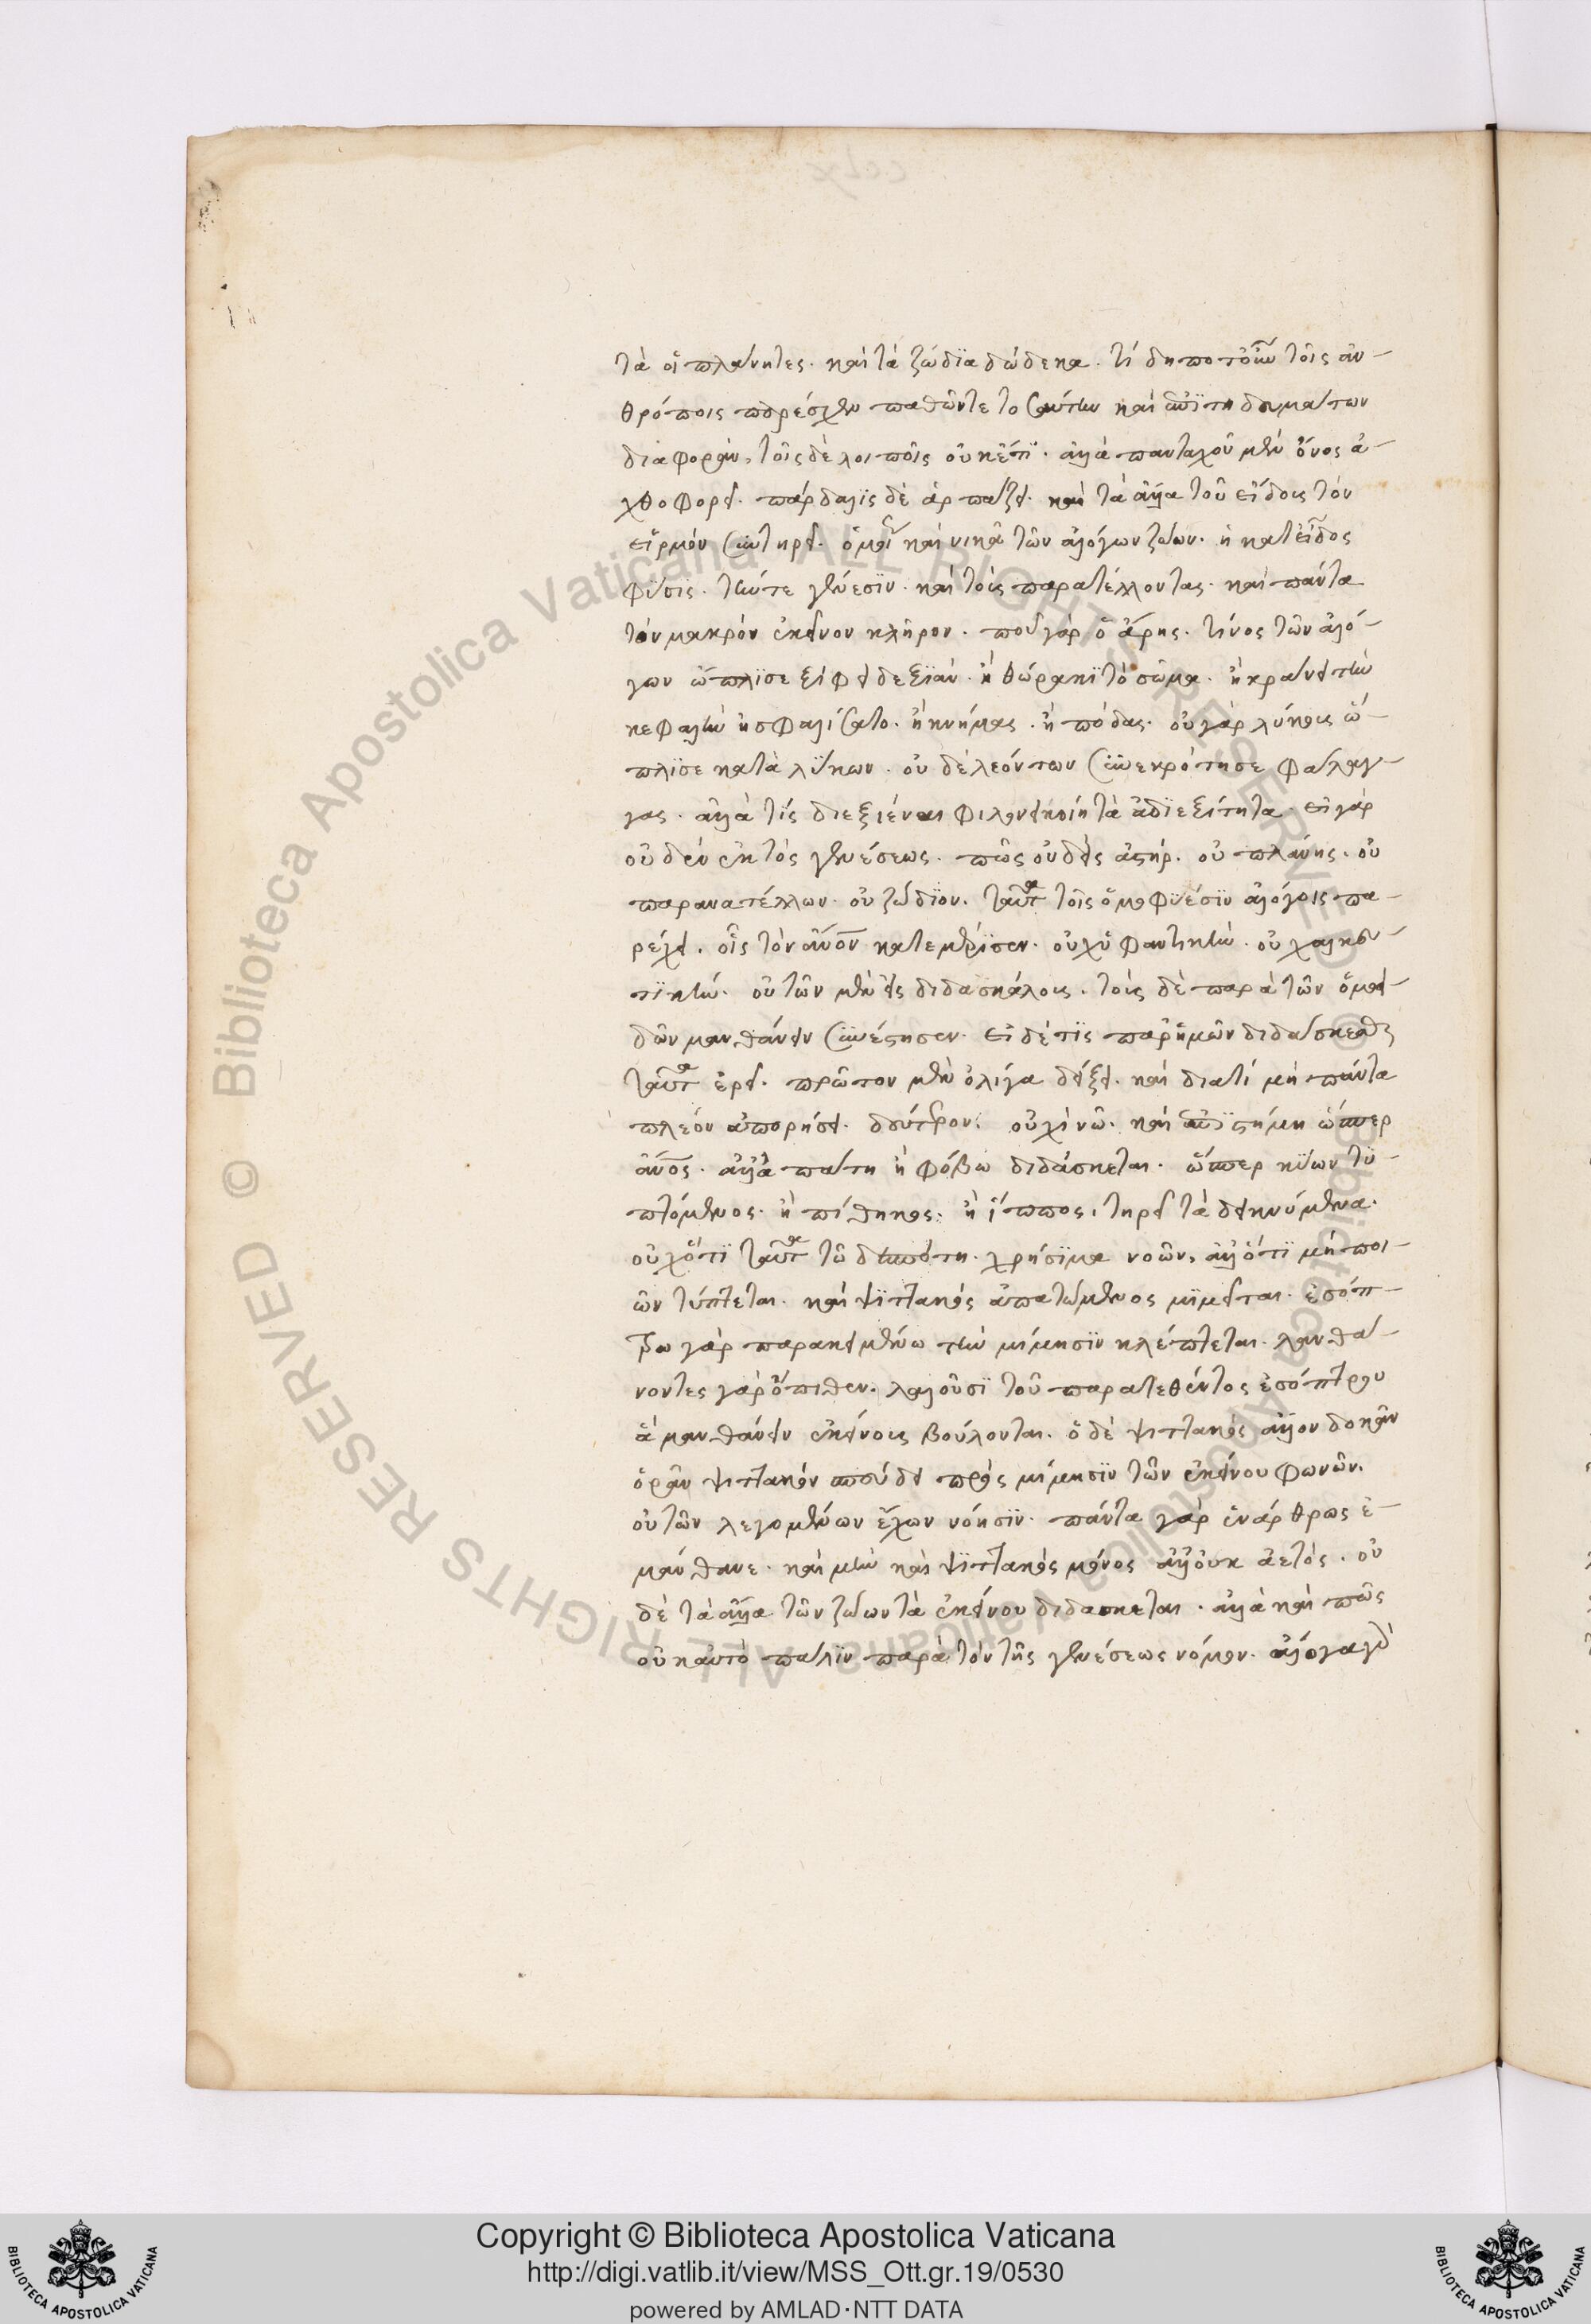 τὰ οἱ πλάνητες. καὶ τὰ ζώδϊα δώδεκα. τί δήποτ᾽ οὖν τοῖς ἀν-
θρόποις παρέσχεν παθῶντε τοσαύτην καὶ ἐπϊτηδευμάτων
διαφορὰν, τοῖς δὲ λοιποῖς οὐκέτϊ. ἀλλὰ πανταχοῦ μὲν ὄνος ἀ-
χθοφορεῖ. πάρδαλϊς δὲ ἁρπάζει. καὶ τὰ ἄλλα τοῦ εἴδους τὸν
εἱρμὸν συντηρεῖ. καὶ νικᾶ τῶν ἀλόγων ζώων. ἡ κατ εἶδος
φύσις. τήν τε γένεσϊν. καὶ τοὺς παρατέλλοντας. καὶ πάντα
τὸν μακρὸν ἐκεῖνον κλῆρον. ποῦ γὰρ ὁ ἄρης. τίνος τῶν ἀλό-
γων ὥπλϊσε ξίφει δεξϊάν. ἢ θώρακϊ τὸ σῶμα. ἢ κράνει τὴν
κεφαλὴν ἠσφαλίσατο. ἢ κνήμας. ἢ πόδας. οὐ γὰρ λύκους ὥ-
πλϊσε κατὰ λύκων. οὐδὲ λεόντων συνεκρότησε φάλαγ-
γας. ἀλλὰ τίς διεξιέναι φιλονεικοίη τὰ ἀδϊεξίτητα. εἰ γὰρ
οὐδὲν ἐκτὸς γενέσεως. πῶς οὐδεὶς ἀστήρ. οὐ πλάνης. οὐ
παρανατέλλων. οὐ ζώδϊον. ταῦτα τοῖς ὁμοφϋέσϊν ἀλόγοις πα-
ρέχει. οἷς τὸν ἄνον κατεμέρϊσεν. οὐχὶ φαντικὴν. οὐ χαλκευ-
τϊκήν. οὐ τῶν μὲν εἰς διδασκάλους. τοὺς δὲ παρὰ τῶν ὁμοει-
δῶν μανθάνειν συνέστησεν. εἰ δέ τϊς παρ᾽ ἡμῶν διδάσκεσθαι
ταῦτα ἐρεῖ. πρῶτον μὲν ὀλίγα δείξει. καὶ διατί μὴ πάντα
πλέον ἀπορήσει. δεύτερον. οὐχὶ νῶ. καὶ ἐπϊστήμη ὥσπερ
ἄνος. ἀλλὰ πάτη ἢ φόβω διδάσκεται. ὥσπερ κύων τϋ-
πτόμενος. ἢ πίθηκος. ἢ ἵππος. τηρεῖ τὰ δεικνύμενα.
οὐχ ὅτϊ ταῦτα τῶ δεσπότη χρήσϊμα νοῶν, ἀλλ᾽ ὅτϊ μὴ ποι-
ῶν τύπτεται. καὶ ψϊττακὸς ἀπατώμενος μϊμεῖται. ἐσόπ-
τρω γὰρ παρακειμένω τὴν μίμησϊν κλέπτεται. λανθά-
νοντες γὰρ ὄπιθεν. λαλοῦσϊ τοῦ παρατεθέντος ἐσόπτρου
ἃ μανθάνειν ἐκείνους βούλονται. ὁ δὲ ψιττακὸς ἄλλον δοκῶν
ὁρᾶν ψιττακὸν σπεύδει πρὸς μίμησϊν τῶν ἐκείνου φωνῶν.
οὐ τῶν λεγομένων ἔχων νόησϊν. πάντα γὰρ ἐνάρθρως ἐ-
μάνθανε. καὶ μὴν καὶ ψϊττακὸς μόνος ἀλλ᾽ οὐκ ἀετός. οὐ
δὲ τὰ ἄλλα τῶν ζώων τὰ ἐκείνου διδάσκεται. ἀλλὰ καὶ πῶς
οὐκ αὐτὸ πάλϊν παρὰ τὸν τῆς γενέσεως νόμον. ἄλογα γὰρ